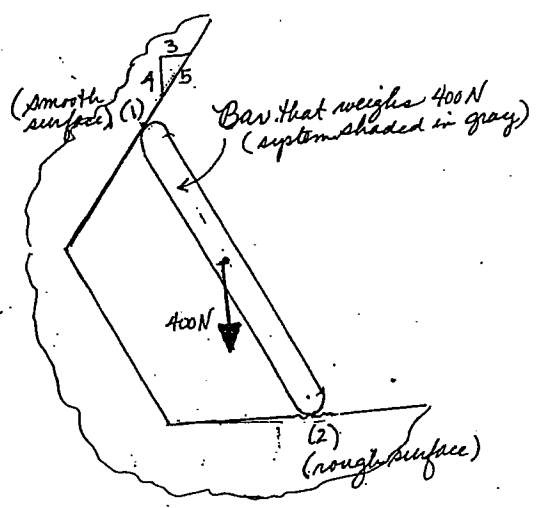 3
4 5
(smooth
surface) (1)
Bar that weighs 400N
(system shaded in gray)
400N
(2)
(rough surface)